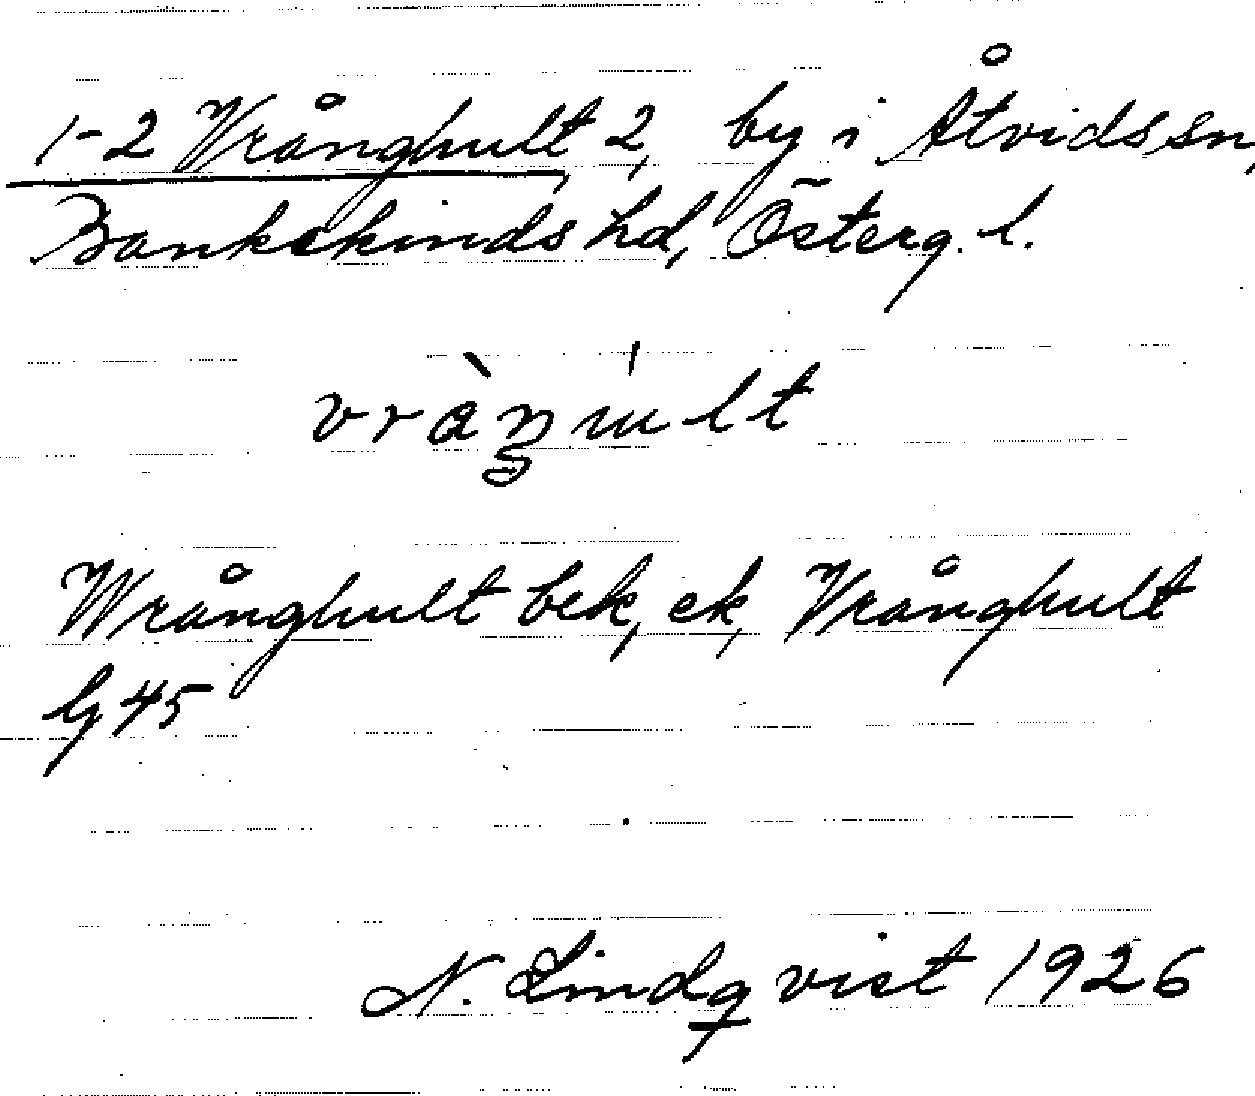 1-2 Vrånghult 2, by i Åtvids sn,
Bankekinds hd, Österg. l.
vràŋɯ́lt
Wrånghult bek, ek, Vrånghult
Gg 45
N. Lindqvist 1926